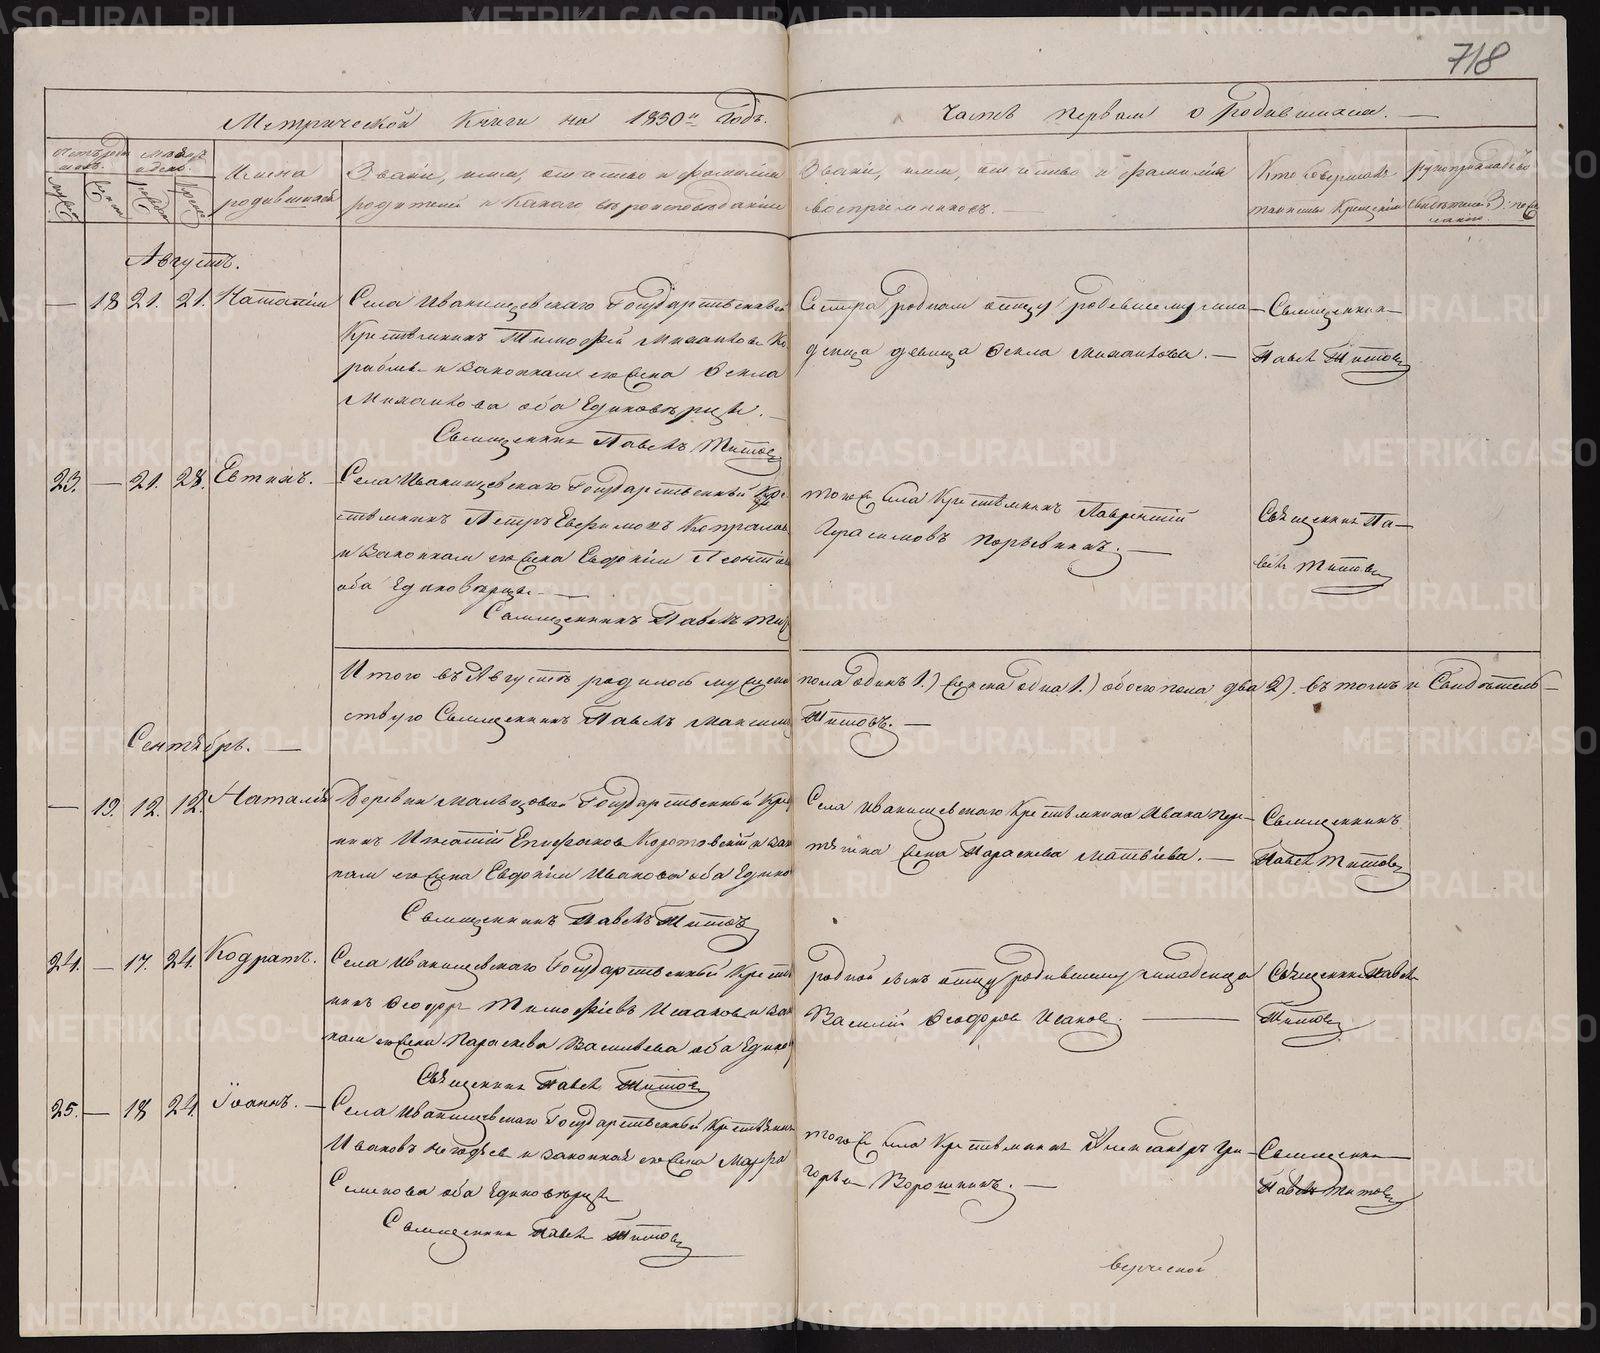 718
Метрической Книги на 1880й Годъ.
Часть первая о родившихся.
Имена родившихся
Званіе, имя, отчество и фамилія родителей и какаго вѣроисповѣданія
Званіе, имя, отчество и фамилія воспріемниковъ.
Кто совершалъ таинство Крещенія
рукоприкладство свидѣтелей
Августъ.
— 18 21. 21. Наталія
Села Иванищевскаго Государственный
Крестьянинъ Тимофей Михайловъ
и законная его жена Фекла
Михайлова оба Единовѣрцы.
Священникъ Павелъ Титовъ
Сестра родная отцу родившемуся мла-
денца девица Фекла Михайлова. —
Священник
Павелъ Титовъ
23. — 21. 28. Евтихъ. —
Села Иванищевскаго Государственный Кре-
стьянинъ Петръ Евфимовъ
и законная его жена Евдокія Леонтіева
оба Единоверцы. —
Священникъ Павелъ Тит
тогоже села Крестьянинъ Лаврентій
Герасимовъ —
Священникъ Па-
велъ Титовъ
Итого въ Августѣ родилось мужеска
пола Одинъ 1.) женска Одна 1.) обоего пола два 2). въ томъ и Свидѣтель-
ствую Священникъ Павелъ Максимов
Титовъ. —
Сентябрь. —
— 19. 12. 12. Наталія
Деревни Мальцовой Государственный Кре
нинъ Игнатій Епифановъ Коротовскій и зак
ная его жена Евдокія Иванова оба Едино
Священникъ Павелъ Титовъ
Села Иванищевскаго Крестьянина Ивана Пере-
тягина жена Параскева Матвѣева. —
Священникъ
Павелъ Титовъ
24. — 17. 24. Кодратъ.
Села Иванищевскаго Государственный Крестья
нинъ Феодоръ Тимофѣевъ Исаковъ и зак
ная его жена Параскева Васильева оба Едино
Священникъ Павелъ Титовъ
родной сынъ отцу родившему младенца
Василій Феодоровъ Исаковъ. —
Священникъ Павелъ
Титовъ
25. — 18 24. Іоаннъ. —
Села Иванищевскаго Государственный Крестьянинъ
Ивановъ и законная его жена Марфа
Семенова оба Единовѣрцы
Священникъ Павелъ Титовъ
тогоже села Крестьянинъ Александръ Гри-
горьевъ Ворошнинъ. —
Священникъ
Павелъ Титовъ
METRIKI.GASO-URAL.RU